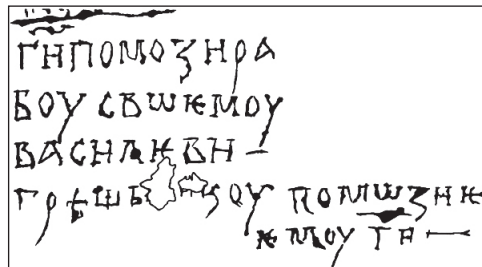 ГИПОМОЗИРА
БОУ СВѠѤМОУ
ВАСИЛѤВИ
ГРѢШЬ ПОМѠЗИѤ
ѤМОУ ГИ